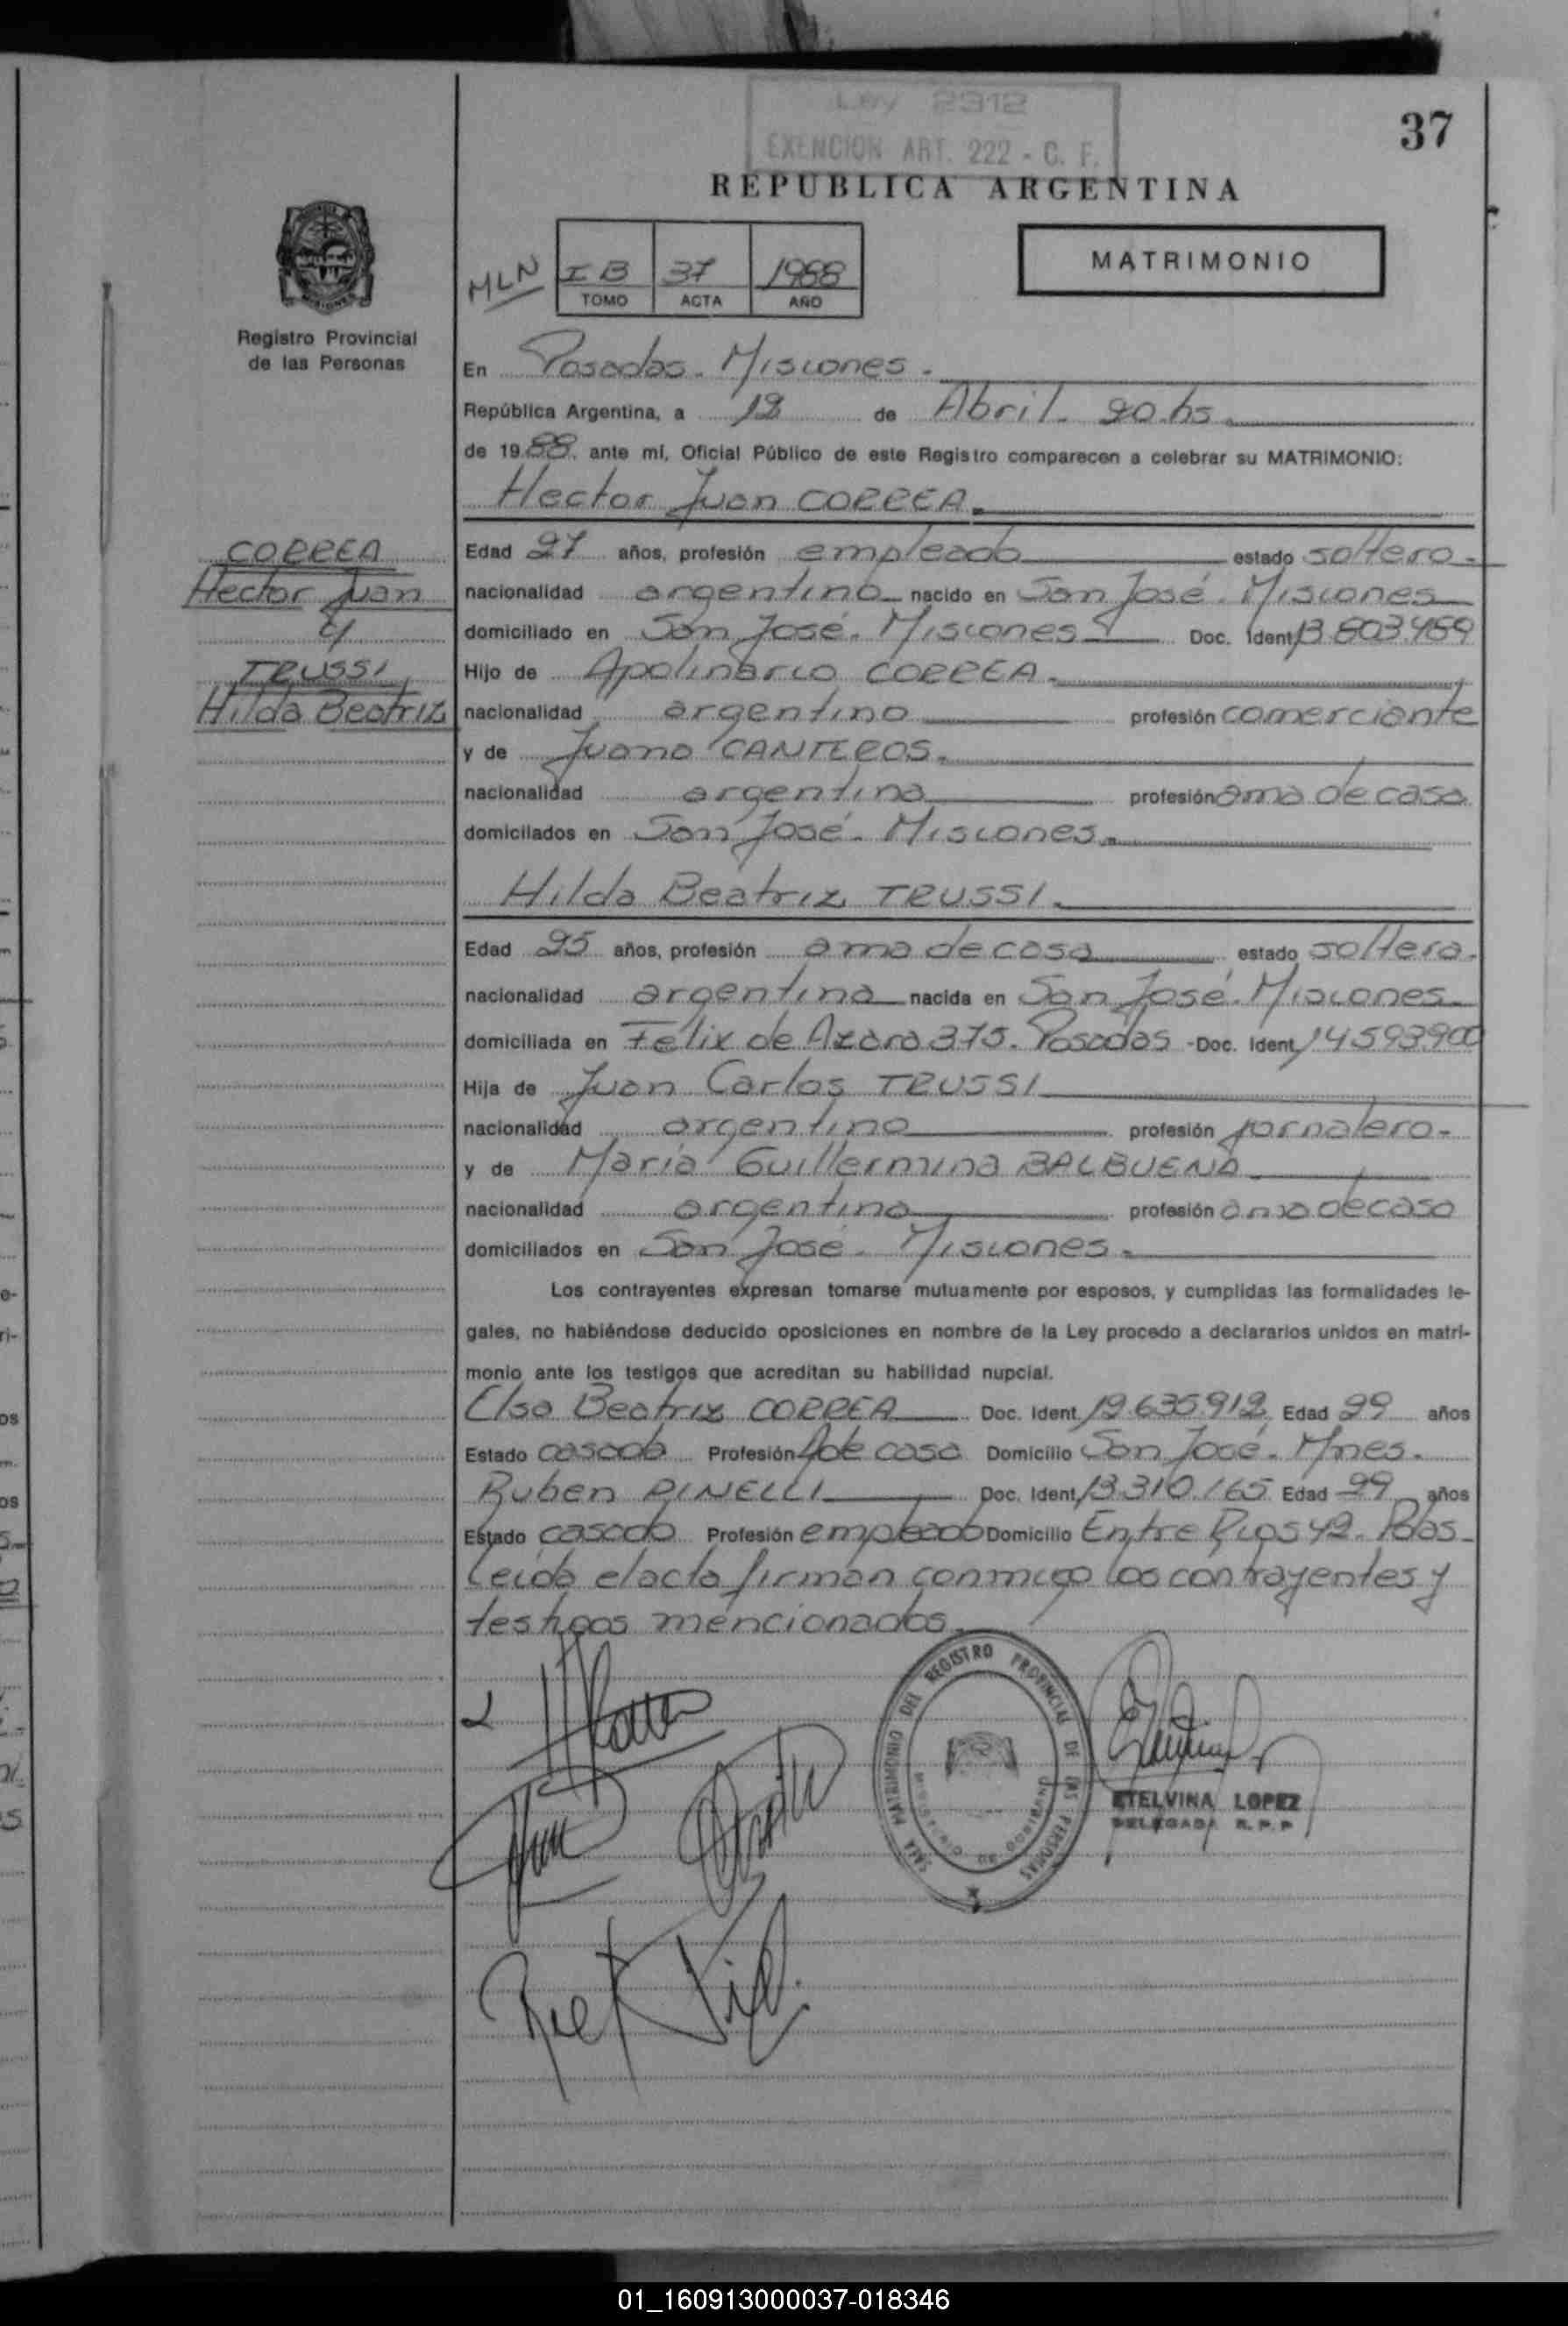 Ley 2312
EXENCION ART. 222 - C. F.
37
REPUBLICA ARGENTINA
MLN
I B 37 1988
TOMO ACTA AÑO
MATRIMONIO
Registro Provincial
de las Personas
En Posadas - Misiones -
República Argentina, a 12 de Abril - 20. hs
de 1988 ante mí, Oficial Público de este Registro comparecen a celebrar su MATRIMONIO:
Hector Juan CORREA
CORREA
Hector Juan
y
TRUSSI
Hilda Beatriz
Edad 27 años, profesión empleado estado soltero -
nacionalidad argentino nacido en San José - Misiones
domiciliado en San José - Misiones Doc. Ident. 13.803.459
Hijo de Apolinario CORREA -
nacionalidad argentino profesión comerciante
y de Juana CANTEROS -
nacionalidad argentina profesión ama de casa
domicilados en San José - Misiones -
Hilda Beatriz TRUSSI -
Edad 25 años, profesión ama de casa estado soltera -
nacionalidad argentina nacida en San José - Misiones -
domiciliada en Felix de Azara 375 - Posadas - Doc. Ident. 14593900
Hija de Juan Carlos TRUSSI
nacionalidad argentino profesión jornalero -
y de María Guillermina BALBUENA
nacionalidad argentina profesión ama de casa
domiciliados en San José - Misiones -
Los contrayentes expresan tomarse mutuamente por esposos, y cumplidas las formalidades le-
gales, no habiéndose deducido oposiciones en nombre de la Ley procedo a declararlos unidos en matri-
monio ante los testigos que acreditan su habilidad nupcial.
Elsa Beatriz CORREA Doc. Ident. 12.635.912 Edad 29 años
Estado casada Profesión A de casa Domicilio San José - Mnes -
Ruben PINELLI Doc. Ident. 13.310.165 Edad 29 años
Estado casado Profesión empleado Domicilio Entre Rios 42 - Pdas -
Leida el acta firman conmigo los contrayentes y
testigos mencionados -
SALA MATRIMONIO DEL REGISTRO PROVINCIAL DE LAS PERSONAS
MINISTERIO DE GOBIERNO
ETELVINA LOPEZ
DELEGADA R. P. P
01_160913000037-018346